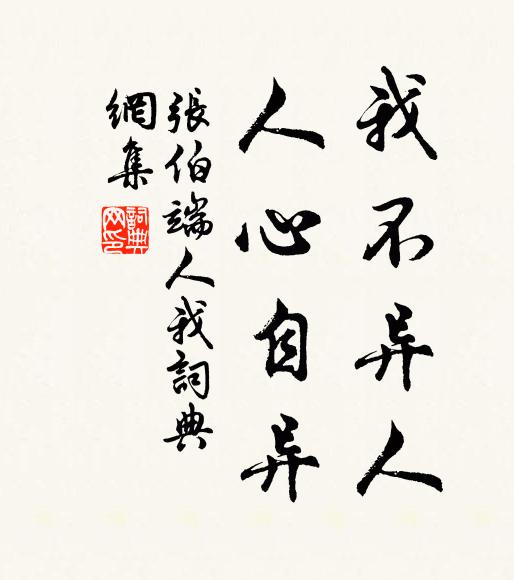 我不异人
人心自异
張伯端人我詞典
網集
詞典网印